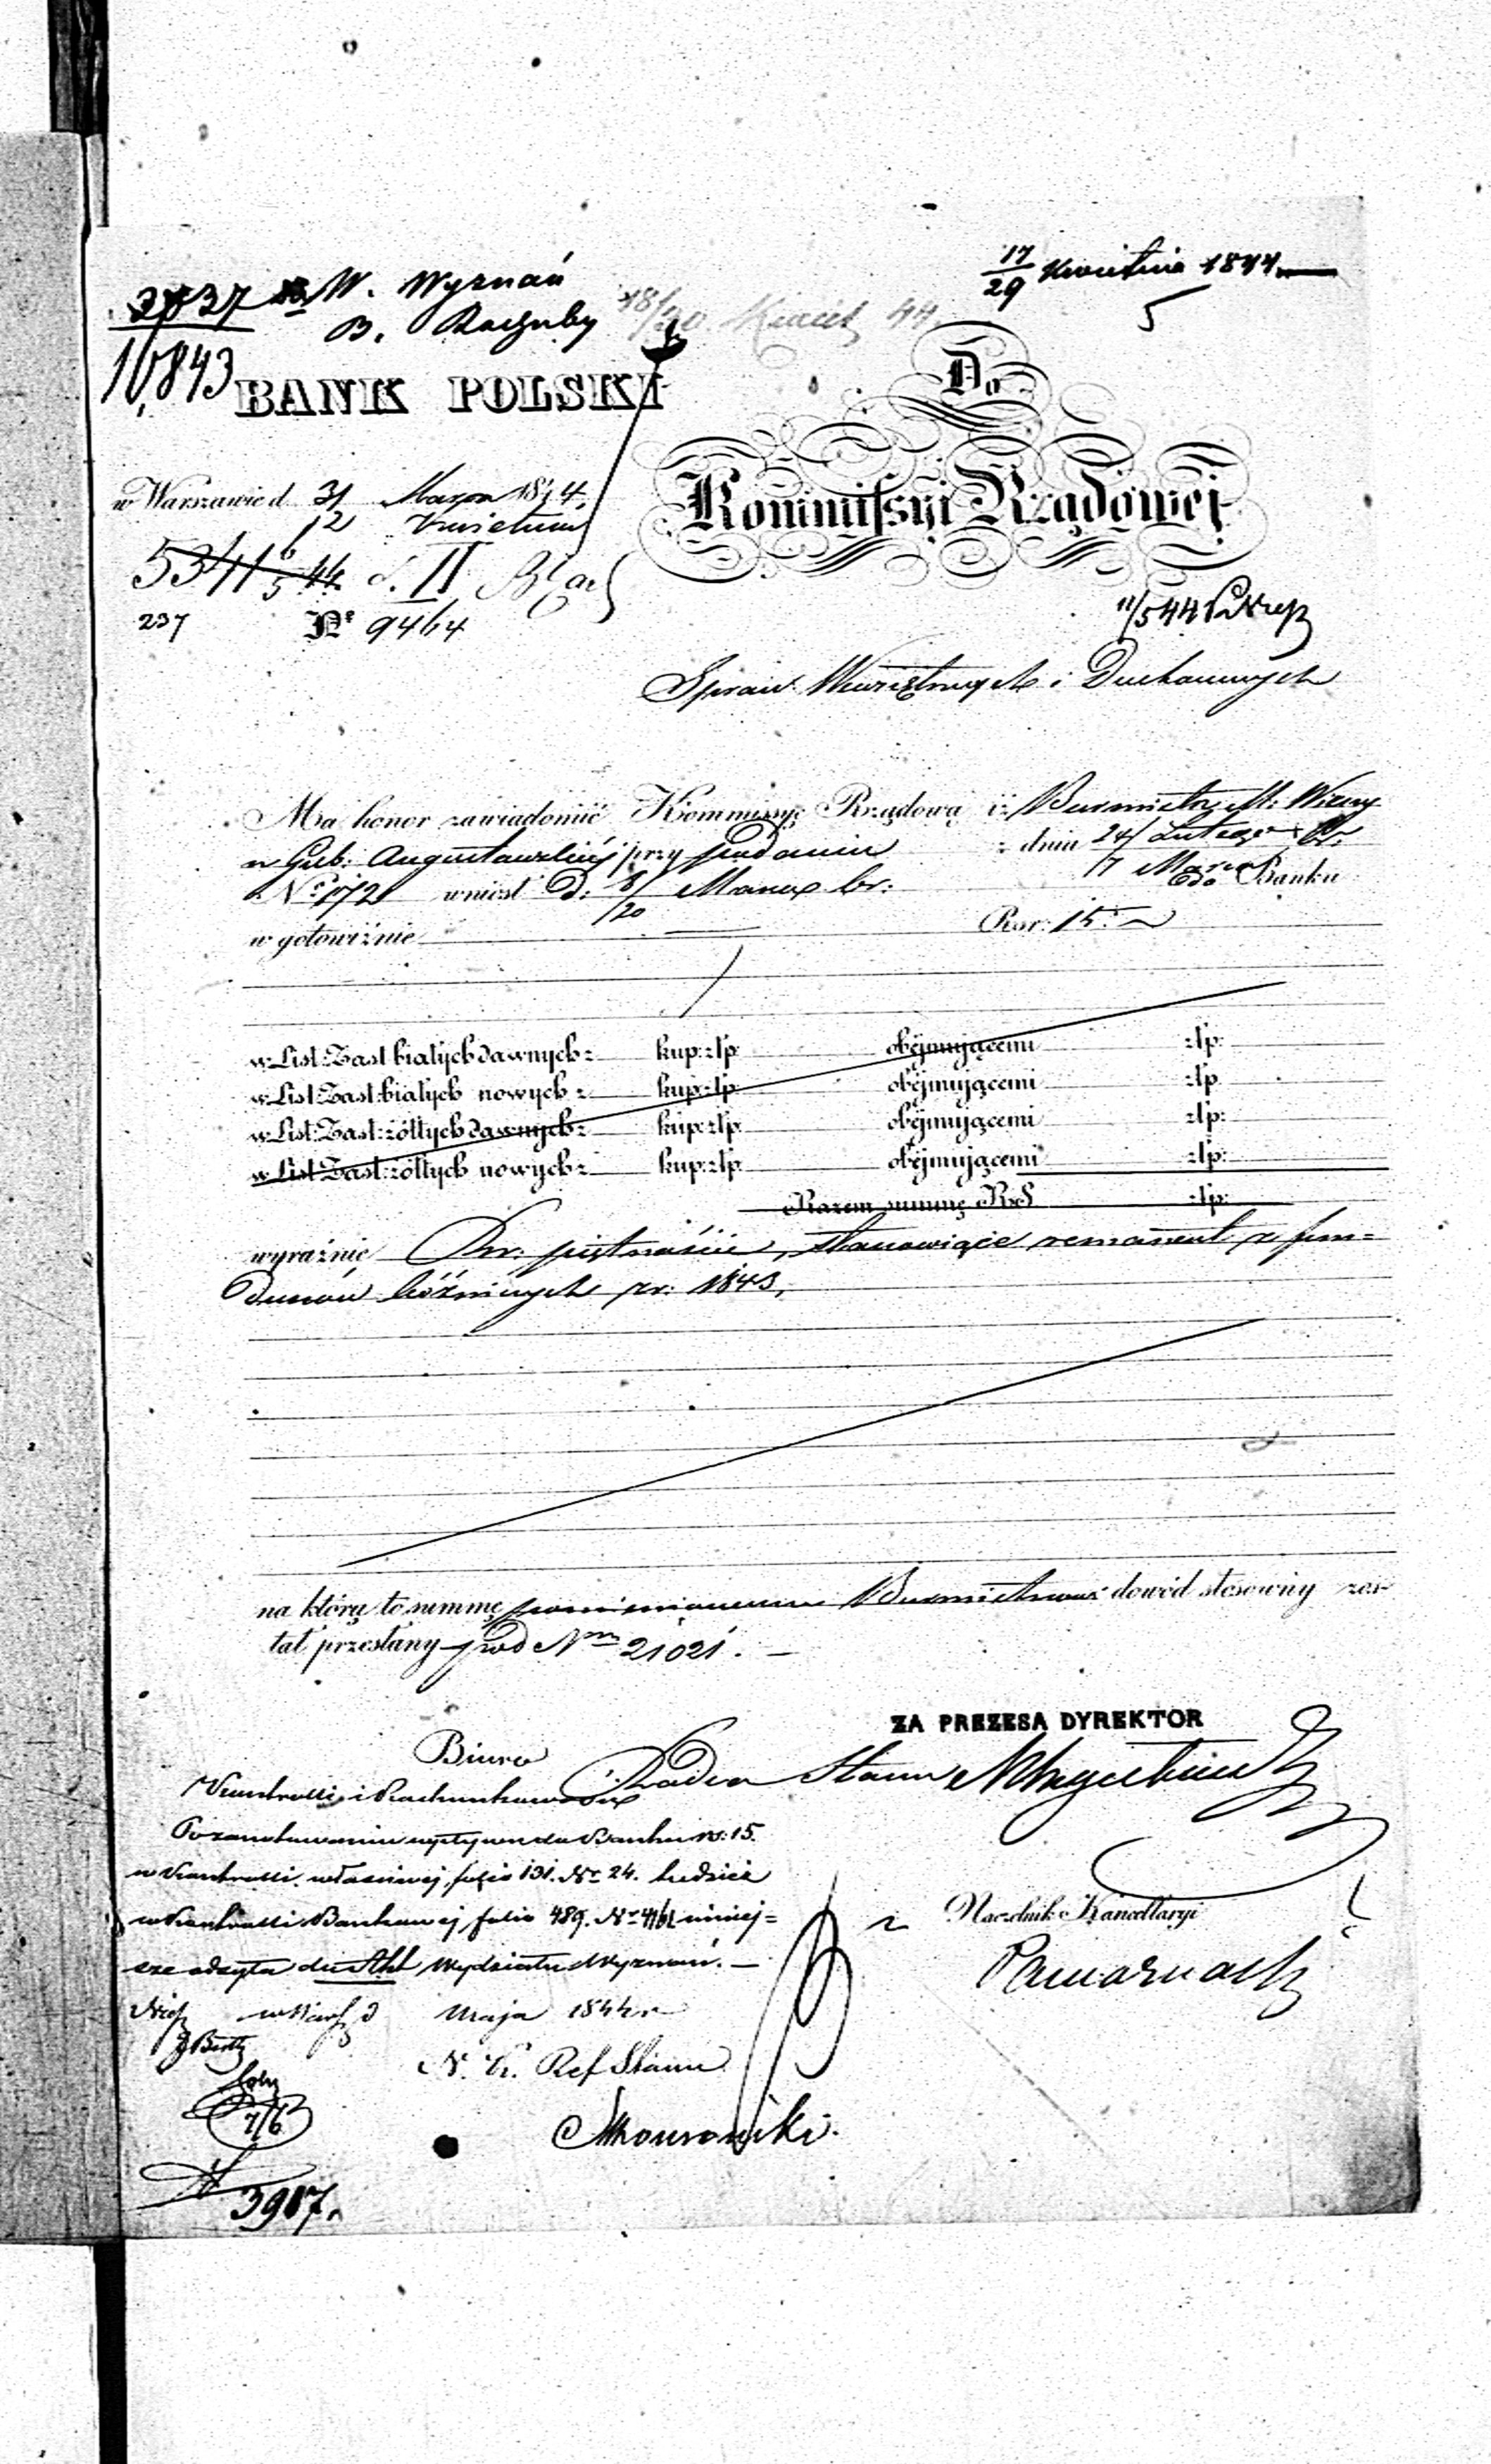 17/29 Kwietnia 1844
3837 W. Wyznań
B. Rachuby 18/30 Kwiet 44
5
10843
BANK POLSKI
Do
Kommissyi Rządowej
w Warszawie d 31 Marca 1844
12 Kwietnia
237
Nr 9464
Spraw Wewnętrznych i Duchownych
Ma honor zawiadomić Kommissyę Rządową iż Burmistrz M: Wizny
w Gub: Augustowskiej przy podaniu z dnia 24/7 Lutego/Marca br.
Nr 172 wniósł d: 8/20 Marca br: do Banku
w gotowiźnie Rsr: 15
w List: Zast białych dawnych: kup: złp: obejmującemi złp:
w List: Zast: białych nowych: kup: złp: obejmującemi złp:
w List: Zast: żółtych dawnych: kup: złp: obejmującemi złp:
w List: Zast: żółtych nowych: kup: złp: obejmującemi złp:
Razem summę RsS złp:
wyraźnie Rsr: piętnaście, stanowiące remanent z fun=
duszów bóżniczych zr: 1843,
na którą to summę pomienionemu Burmistrzowi dowód stosowny zos-
tał przesłany pod Nrm 21021. —
ZA PREZESA DYREKTOR
Radca Stanu
Biuro
Kontrolli i Rachunkowości
Po zanotowaniu wpływu do Banku rs: 15.
w Kontrolli właściwej folio 131. Nr 24. tudzież
w Kontrolli Bankowej folio 489. Nr 4161 niniej=
sze odsyła do Akt Wydziału Wyznań. —
Naczelnik Kancellaryi
maja 1844 r
N. K. Ref Stanu
7/6
3987.